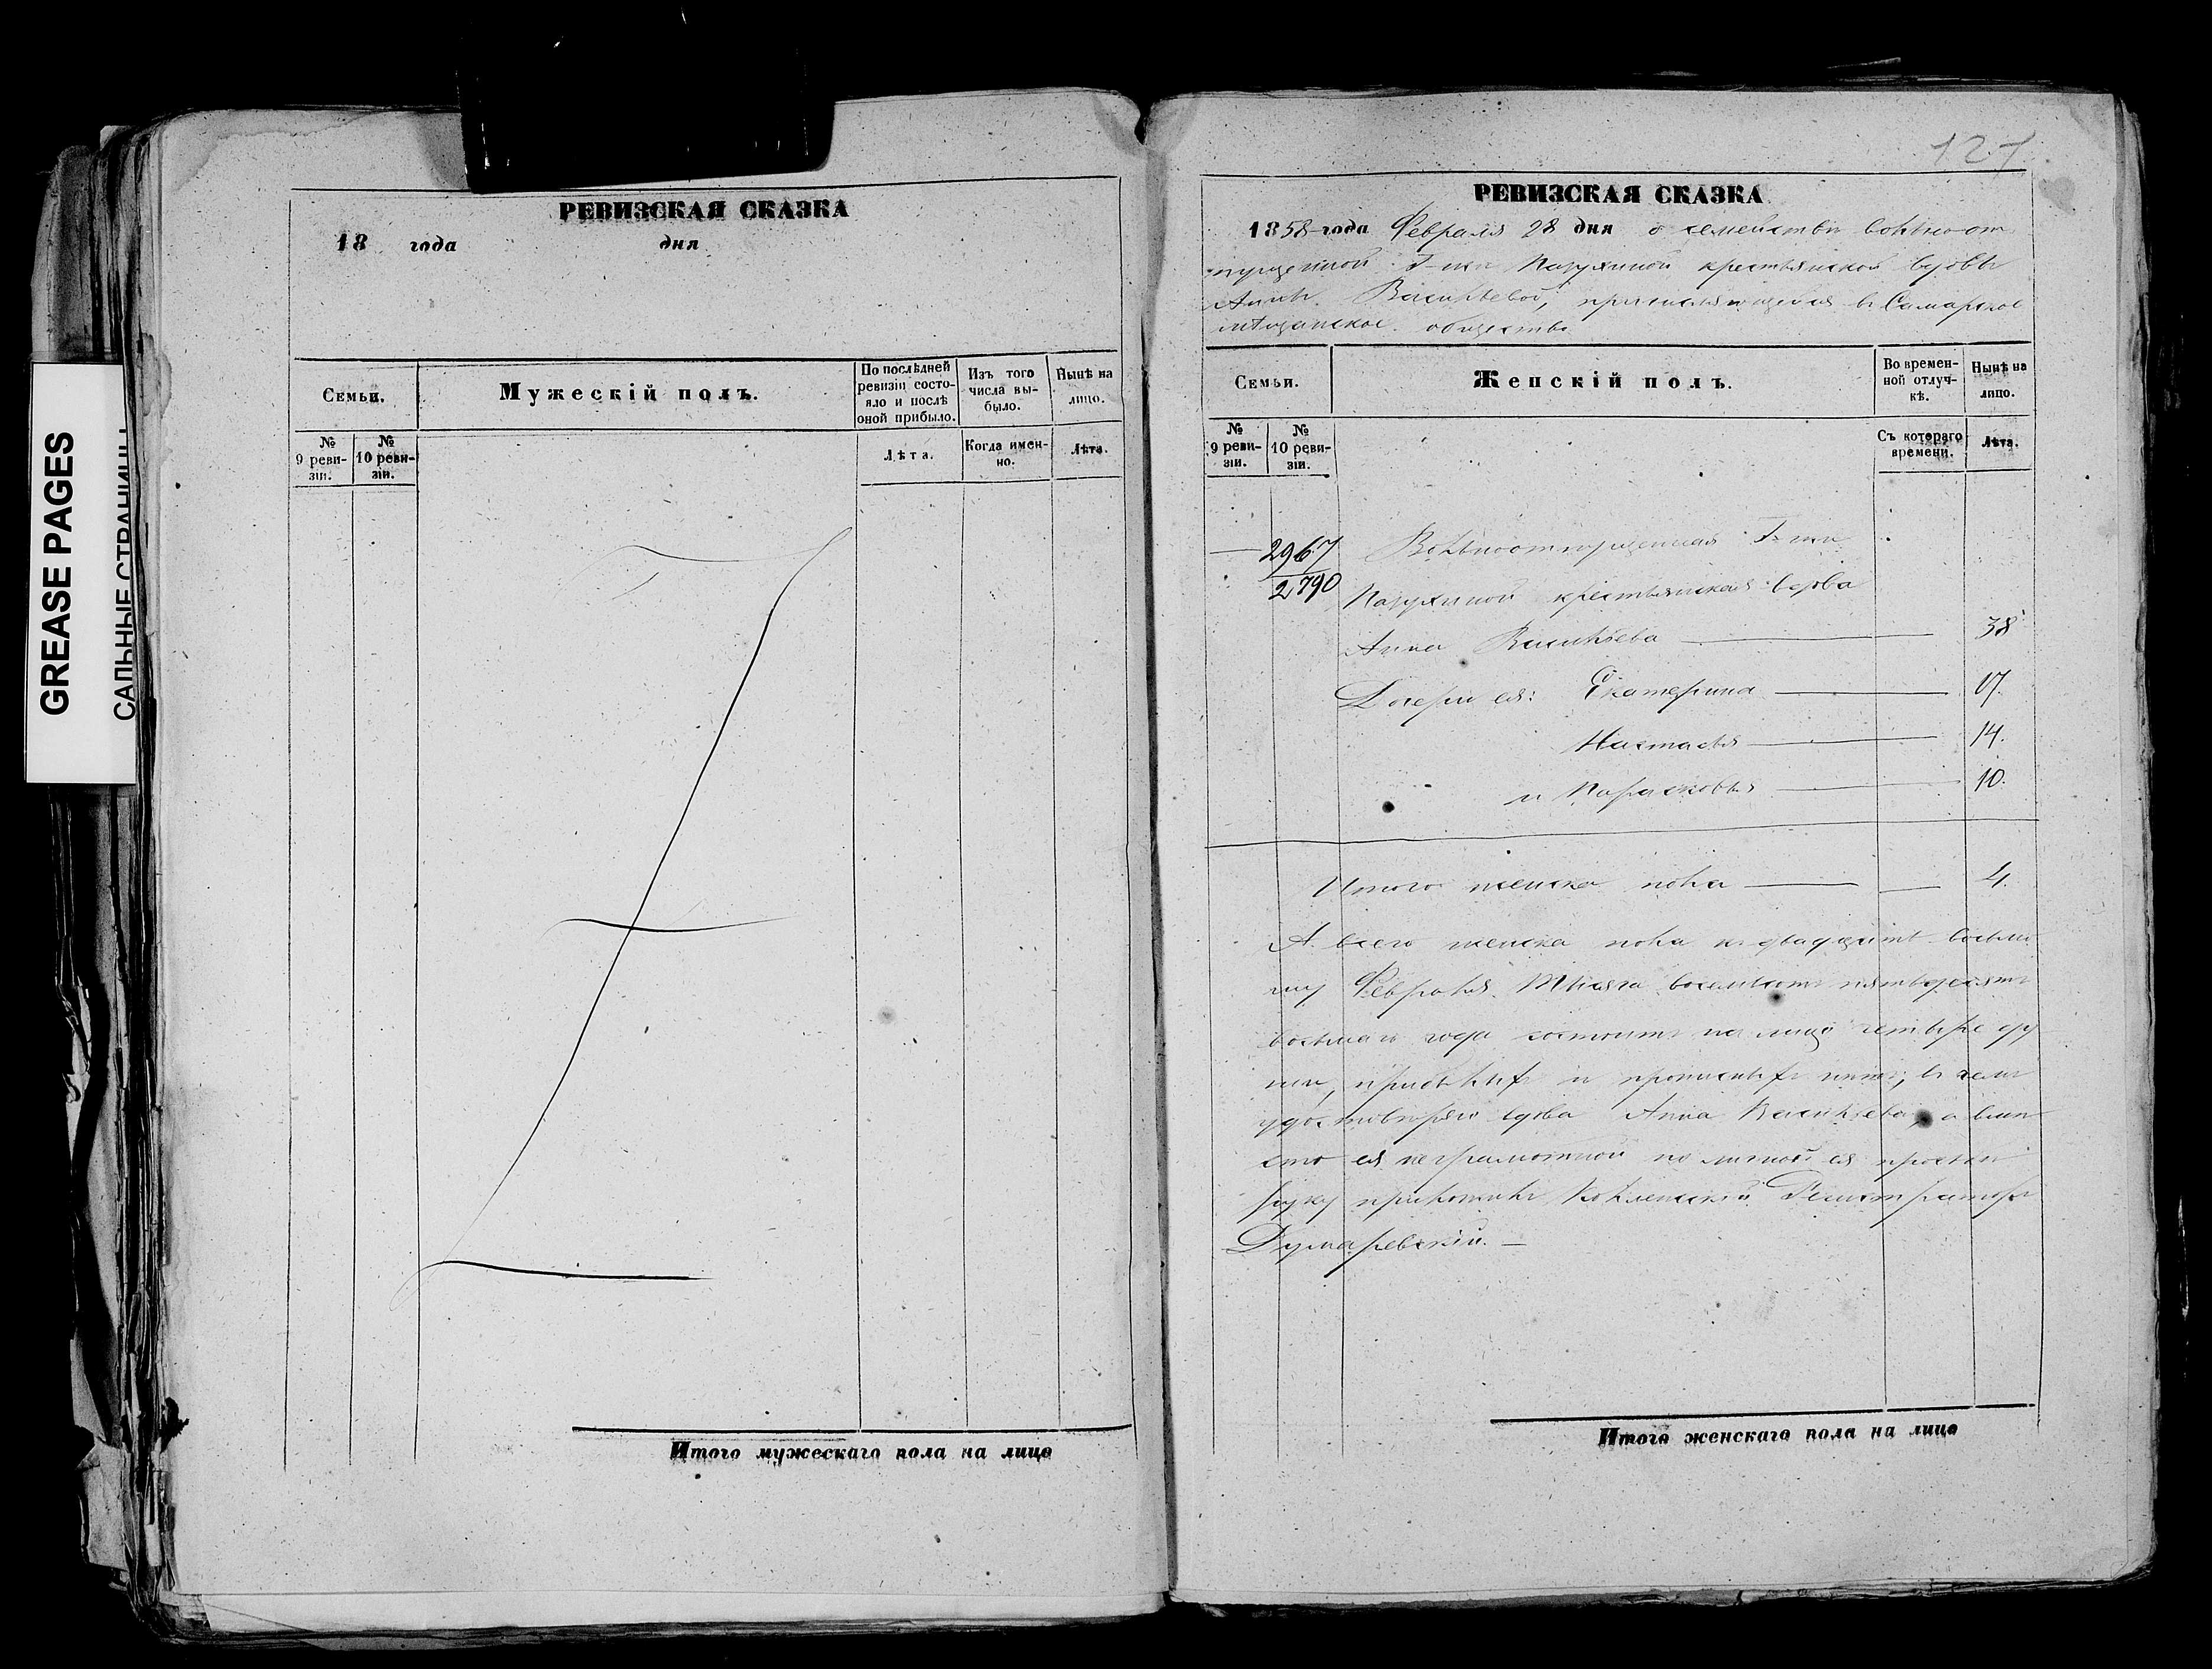 GREASE PAGES
САЛЬНЫЕ СТРАНИЦЫ
РЕВИЗСКАЯ СКАЗКА
18 года дня
Семьи.
Мужескій полъ.
По послѣдней ревизіи состояло и послѣ оной прибыло.
Изъ того числа выбыло.
Нынѣ на лицо.
№ 9 ревизіи.
№ 10 ревизіи.
Лѣта.
Когда именно.
Лѣта.
Итого мужескаго пола на лицо
127
РЕВИЗСКАЯ СКАЗКА
1858 года Февраля 28 дня о семействѣ вольноот
пущенной Г-жи Пазухиной крестьянской вдовы
Анны Васильевой, причисляющейся въ Самарское
мѣщанское общество
Семьи.
Женскій полъ.
Во временной отлучкѣ.
Нынѣ на лицо.
№ 9 ревизіи.
№ 10 ревизіи.
Съ котораго времени.
Лѣта.
2967 Вольноотпущенная Г-жи
2790 Пазухиной крестьянская вдова
Анна Васильева 38
Дочери ея: Екатерина 17.
Настасья 14.
и Парасковья 10.
Итого женска пола 4.
А всего женска пола къ двадцать восьмо
му Февраля Тысяча восемьсотъ пятьдесятъ
восьмаго года состоитъ на лицо четыре ду
ши, прибылыхъ и прописныхъ нѣтъ, въ чемъ
удостовѣряю вдова Анна Васильева, а вмѣ
сто ея неграмотной по личной ея прозьбѣ
руку приложилъ Коллежскій Регистраторъ
Думаревскій.
Итого женскаго пола на лицо